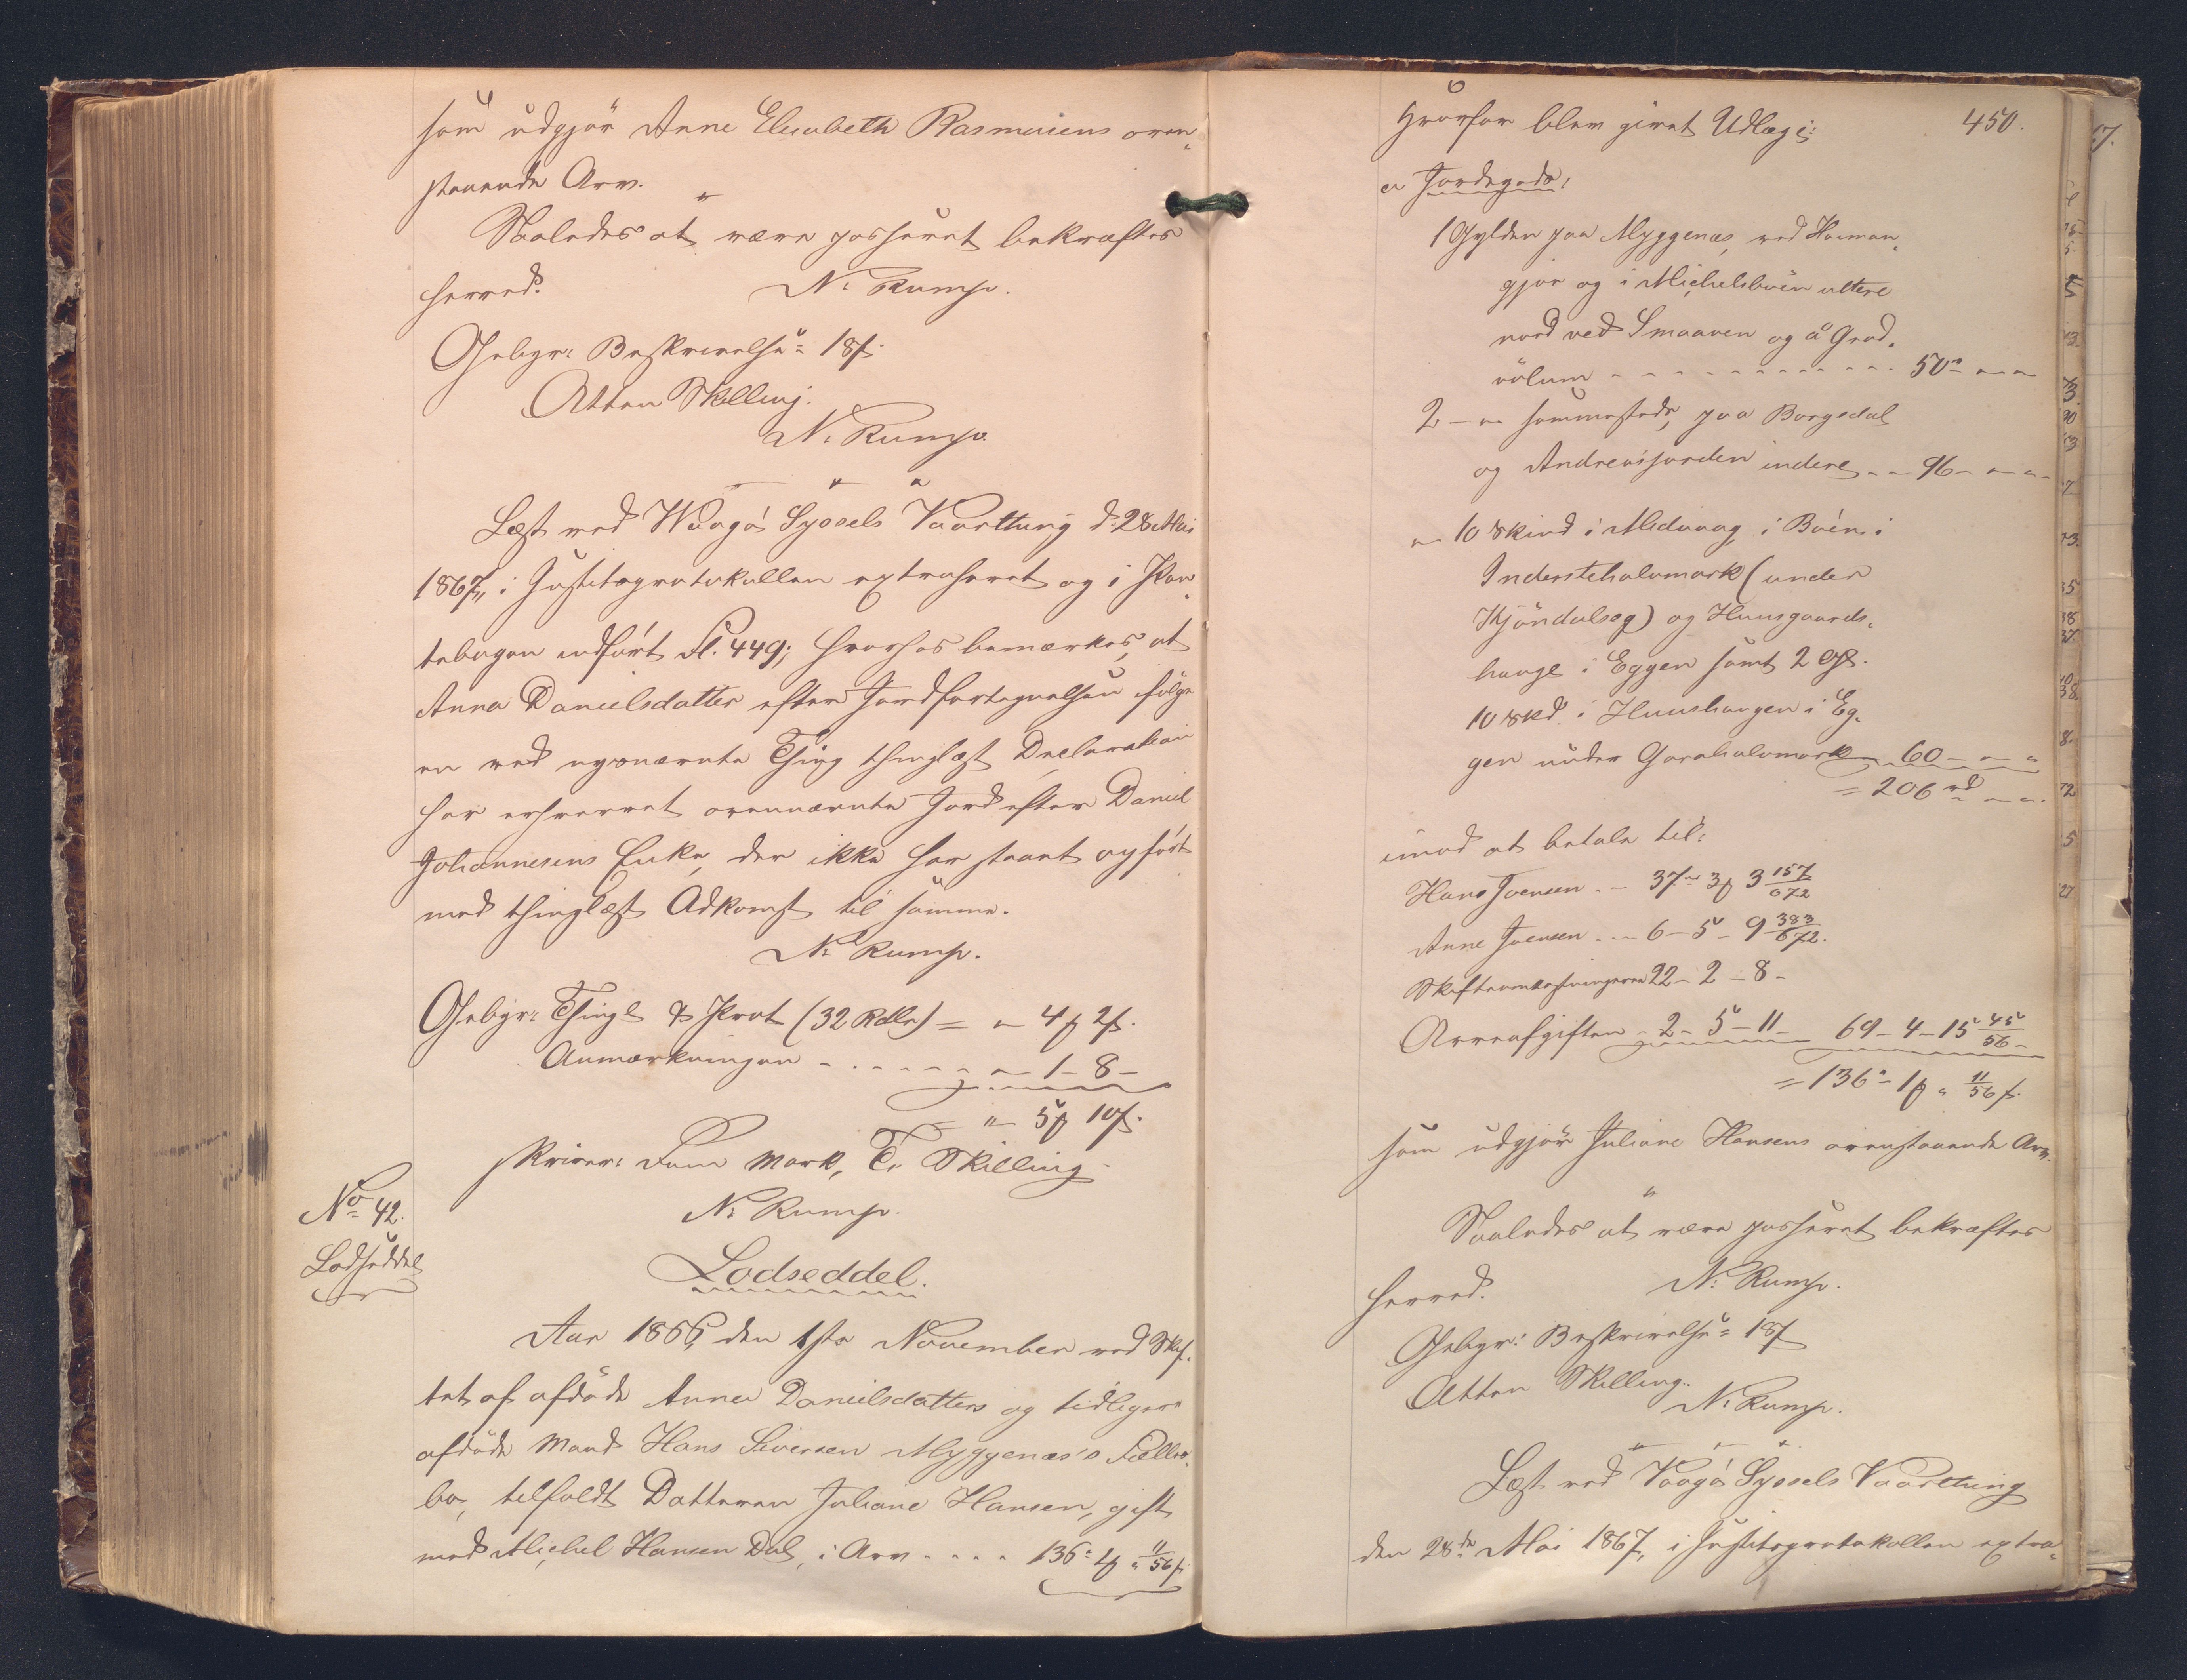 som udgjør Anne Elisabeth Rasmusens oven-
staaende Arv.
"
Saaledes at være passeret bekræftes
herved. N: Rump.
Gebyr: Beskrivelse = 18 ß.
Atten Skilling.
N: Rump.
Læst ved Waagø Syssels Vaarting d. 28 Mai
1867, i Justitsprotokollen extraheret og i Pan-
tebogen indført Fl. 449; hvorhos bemærkes, at
Anna Danielsdatter efter Jordfortegnelsen ifølge
en ved nysnævnte Thing thinglæst Declaration
har erhvervet ovennævnte Jord efter Daniel
Johannesens Enke, der ikke har staaet opført
med thinglæst Adkomst til samme.
N: Rump.
Gebyr: Thingl & Prot (32 Rdlr) = " 4 ꝑ 2 ß.
Anmærkningen - - - - - " 1 - 8 -
= " 5 ꝑ 10 ß.
skriver: Fem Mark, Ti Skilling
N: Rump.
No 42.
Lodseddel
Lodseddel.
Aar 1866, den 1ste November ved Skif-
tet af afdøde Anna Danielsdatters og tidligere
afdøde Mand Hans Siversen Myggenæs's Fælles-
bo, tilfaldt Datteren Juliane Hansen, gift
med Michel Hansen Dal, i Arv - - - - 136 - 1 ꝑ " 11/56 ß
450.
Hvorfor blev givet Udlæg i:
a Jordegods:
1 Gylden paa Myggenæs, ved
gjov og i Michelsbøen uttere
nord ved Smaaven og å Grod-
vølum - - - - - - - - - - - 50 - " - "
2 - " sammesteds, paa Borgsdal
og Andreasjorden indere - - 96 - " - "
" 10 Skind i Midvaag, i Bøen i
Inderstehalvmark (under
Kjøndalsog) og Huusgaards-
hauge i Eggen samt 2 Gl.
10 Skd. i Huushaugen i Eg-
gen under Garahalvmark 60 - " - "
= 206 rd " - "
imod at betale til:
Hans Joensen - - 37 rd 3 ꝑ 3 157/672
Anne Joensen - - 6 - 5 - 9 383/672.
Skifteomkostningerne 22 - 2 - 8 -
Arveafgiften - 2 - 5 - 11 - 69 - 4 - 15 45/56 -
= 136 - 1 ꝑ " 11/56 ß.
som udgjør Juliane Hansens ovenstaaende Arv.
"
Saaledes at være passeret bekræftes
herved. N: Rump.
Gebyr: Beskrivelse = 18 ß
Atten Skilling.
N: Rump.
Læst ved Vaagø Syssels Vaarting
den 28de Mai 1867, i Justitsprotokollen extra-